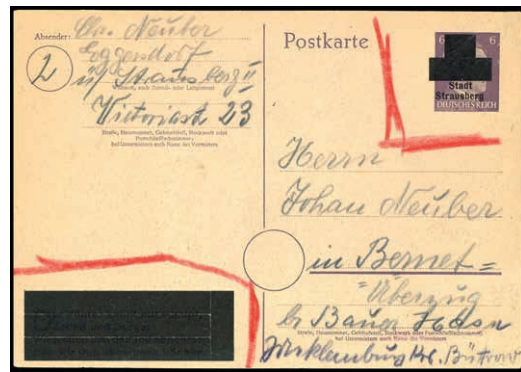 Absender: Chr. Neuber
Eggersdorf
2 ü/ Strausberg II
Wohnort, auch Zustell- oder Leitpostamt
Victoriastr 23
Straße, Hausnummer, Gebäudeteil, Stockwerk oder
Postschließfachnummer;
bei Untermietern auch Name des Vermieters
Postkarte
6 6
Stadt
Strausberg
DEUTSCHES REICH
Herrn
Johan Neuber
in Bernet=
Überzug
b Bauer
Straße, Hausnummer, Gebäudeteil, Stockwerk oder Postschließfachnummer;
bei Untermietern auch Name des Vermieters
Mecklenburg Kr. Bützow